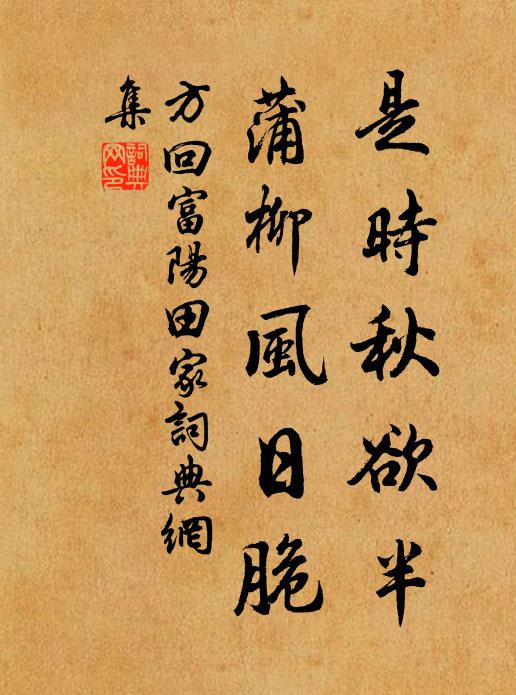 是時秋欲半
蒲柳風日脆
方回富陽田家詞典網
集
詞典網印